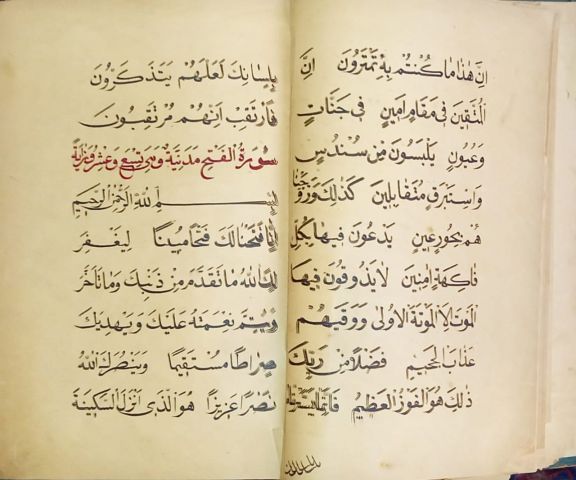 اِنَّ هٰذَا مَا كُنْتُمْ بِهٖ تَمْتَرُونَ اِنَّ
الْمُتَّقِينَ فِى مَقَامٍ اَمِينٍ فِى جَنَّاتٍ
وَعُيُونٍ يَلْبَسُونَ مِنْ سُنْدُسٍ
وَاِسْتَبْرَقٍ مُتَقَابِلِينَ كَذٰلِكَ وَزَوَّجْنَا
هُمْ بِحُورٍ عِينٍ يَدْعُونَ فِيهَا بِكُلِّ
فَاكِهَةٍ اٰمِنِينَ لَا يَذُوقُونَ فِيهَا
الْمَوْتَ اِلَّا الْمَوْتَةَ الْاُولٰى وَوَقٰيهُمْ
عَذَابَ الْجَحِيمِ فَضْلًا مِنْ رَبِّكَ
ذٰلِكَ هُوَ الْفَوْزُ الْعَظِيمُ فَاِنَّمَا يَسَّرْنَاهُ
بِلِسَانِكَ لَعَلَّهُمْ يَتَذَكَّرُونَ
فَارْتَقِبْ اِنَّهُمْ مُرْتَقِبُونَ
سُورَةُ الْفَتْحِ مَدَنِيَّةٌ وَهِىَ تِسْعٌ وَعِشْرُونَ اٰيَةً
بِسْمِ اللّٰهِ الرَّحْمٰنِ الرَّحِيمِ
اِنَّا فَتَحْنَا لَكَ فَتْحًا مُبِينًا لِيَغْفِرَ
لَكَ اللّٰهُ مَا تَقَدَّمَ مِنْ ذَنْبِكَ وَمَا تَاَخَّرَ
وَيُتِمَّ نِعْمَتَهُ عَلَيْكَ وَيَهْدِيَكَ
صِرَاطًا مُسْتَقِيمًا وَيَنْصُرَكَ اللّٰهُ
نَصْرًا عَزِيزًا هُوَ الَّذِى اَنْزَلَ السَّكِينَةَ